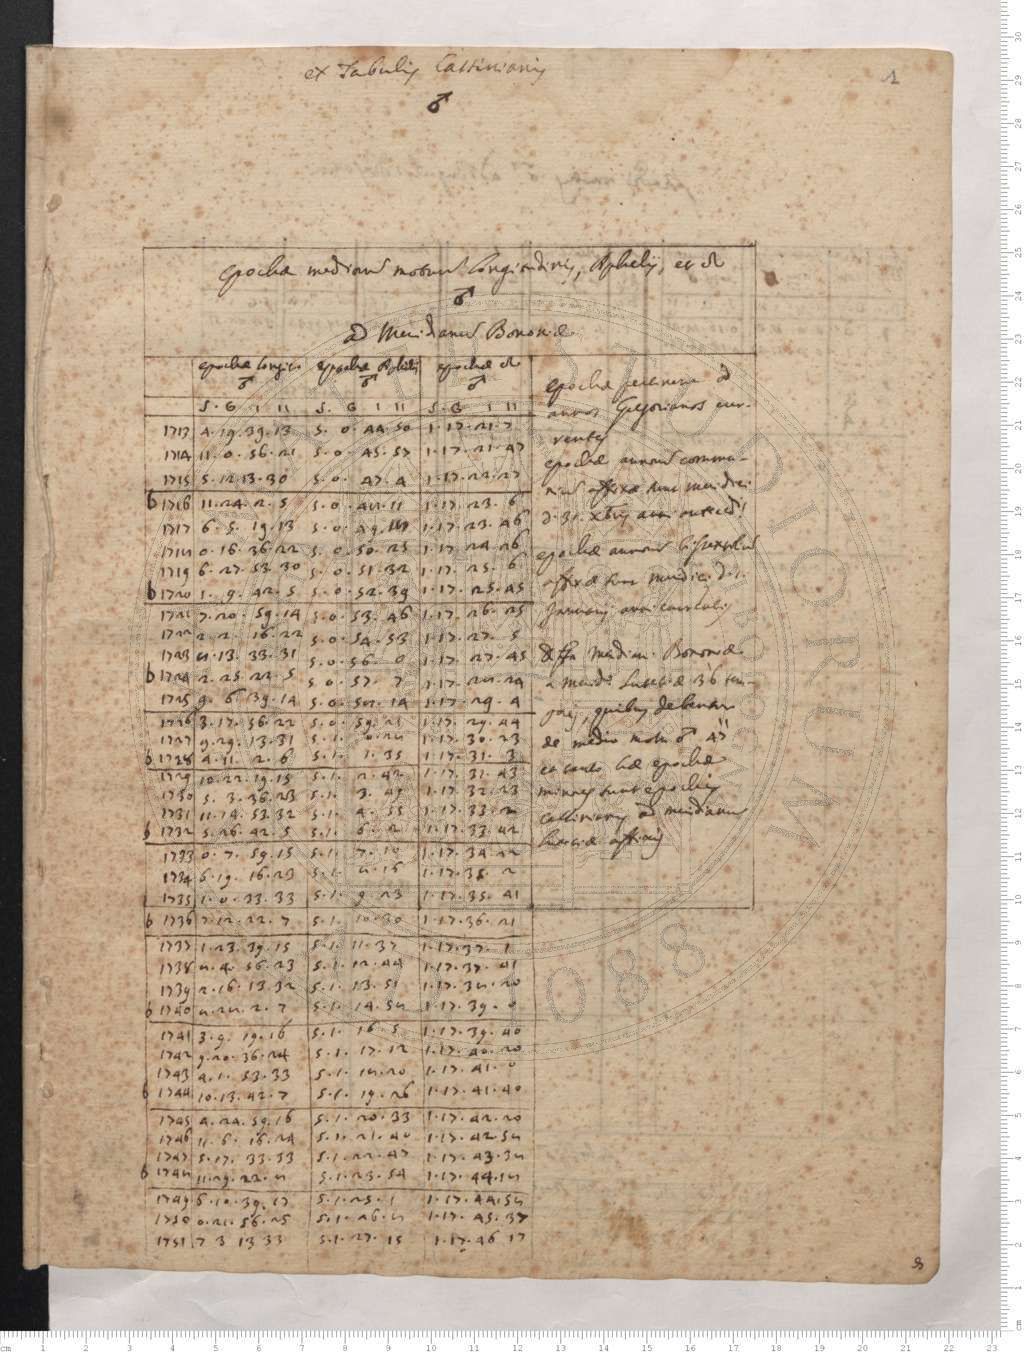 ex Tabulis Cassinianis
1
♂
Epochae mediorum motuum Longitudinis, Aphelij, et ☊
♂
ad Meridianum Bononiae
epochae Longit. epochae Aphelij epochae ☊
♂ ♂ ♂
S. G. I. II S. G I II S. G I II
1713 4. 19. 39. 13 5. 0. 44. 50 1. 17. 21. 7
1714 11. 0. 56. 21 5. 0. 45. 57 1. 17. 21. 47
1715 5. 12. 13. 30 5. 0. 47. 4 1. 17. 22. 27
b 1716 11. 24. 2. 5 5. 0. 48. 11 1. 17. 23. 6
1717 6. 5. 19. 13 5. 0. 49. 18 1. 17. 23. 46
1718 0. 16. 36. 22 5. 0. 50. 25 1. 17. 24. 26
1719 6. 27. 53. 30 5. 0. 51. 32 1. 17. 25. 6
b 1720 1. 9. 42. 5 5. 0. 52. 39 1. 17. 25. 45
1721 7. 20. 59. 14 5. 0. 53. 46 1. 17. 26. 25
1722 2. 2. 16. 22 5. 0. 54. 53 1. 17. 27. 5
1723 8. 13. 33. 31 5. 0. 56. 0 1. 17. 27. 45
b 1724 2. 25. 22. 5 5. 0. 57. 7 1. 17. 28. 24
1725 9. 6. 39. 14 5. 0. 58. 14 1. 17. 29. 4
1726 3. 17. 56. 22 5. 0. 59. 21 1. 17. 29. 44
1727 9. 29. 13. 31 5. 1. 0. 28 1. 17. 30. 23
b 1728 4. 11. 2. 6 5. 1. 1. 35 1. 17. 31. 3
1729 10. 22. 19. 15 5. 1. 2. 42 1. 17. 31. 43
1730 5. 3. 36. 23 5. 1. 3. 49 1. 17. 32. 23
1731 11. 14. 53. 32 5. 1. 4. 55 1. 17. 33. 2
b 1732 5. 26. 42. 5 5. 1. 6. 2 1. 17. 33. 42
1733 0. 7. 59. 15 5. 1. 7. 10 1. 17. 34. 22
1734 6. 19. 16. 23 5. 1. 8. 16 1. 17. 35. 2
1735 1. 0. 33. 33 5. 1. 9. 23 1. 17. 35. 41
b 1736 7. 12. 22. 7 5. 1. 10. 30 1. 17. 36. 21
1737 1. 23. 39. 15 5. 1. 11. 37 1. 17. 37. 1
1738 8. 4. 56. 23 5. 1. 12. 44 1. 17. 37. 41
1739 2. 16. 13. 32 5. 1. 13. 51 1. 17. 38. 20
b 1740 8. 28. 2. 7 5. 1. 14. 58 1. 17. 39. 0
1741 3. 9. 19. 16 5. 1. 16. 5 1. 17. 39. 40
1742 9. 20. 36. 24 5. 1. 17. 12 1. 17. 40. 20
1743 4. 1. 53. 33 5. 1. 18. 20 1. 17. 41. 0
b 1744 10. 13. 42. 7 5. 1. 19. 26 1. 17. 41. 40
1745 4. 24. 59. 16 5. 1. 20. 33 1. 17. 42. 20
1746 11. 6. 16. 24 5. 1. 21. 40 1. 17. 42. 58
1747 5. 17. 33. 33 5. 1. 22. 47 1. 17. 43. 38
b 1748 11. 29. 22. 8 5. 1. 23. 54 1. 17. 44. 18
1749 6. 10. 39. 17 5. 1. 25. 1 1. 17. 44. 58
1750 0. 21. 56. 25 5. 1. 26. 8 1. 17. 45. 37
1751 7 3 13 33 5. 1. 27. 15 1. 17. 46 17
epochae ad
annos Gregorianos cur-
rentes
epochae annorum commu-
nium affixae sunt meridiei
d. 31. Xbris anni
epochae annorum bisextilium
affixae sunt meridiei d. 1.
Januarij anni
Meridian. Bononiae
a 36 tem-
poris, quibus debentur
de medio motu ♂ 47''
et hae epochae
minores sunt epochis
Cassinianis ad meridianum
affixis
8